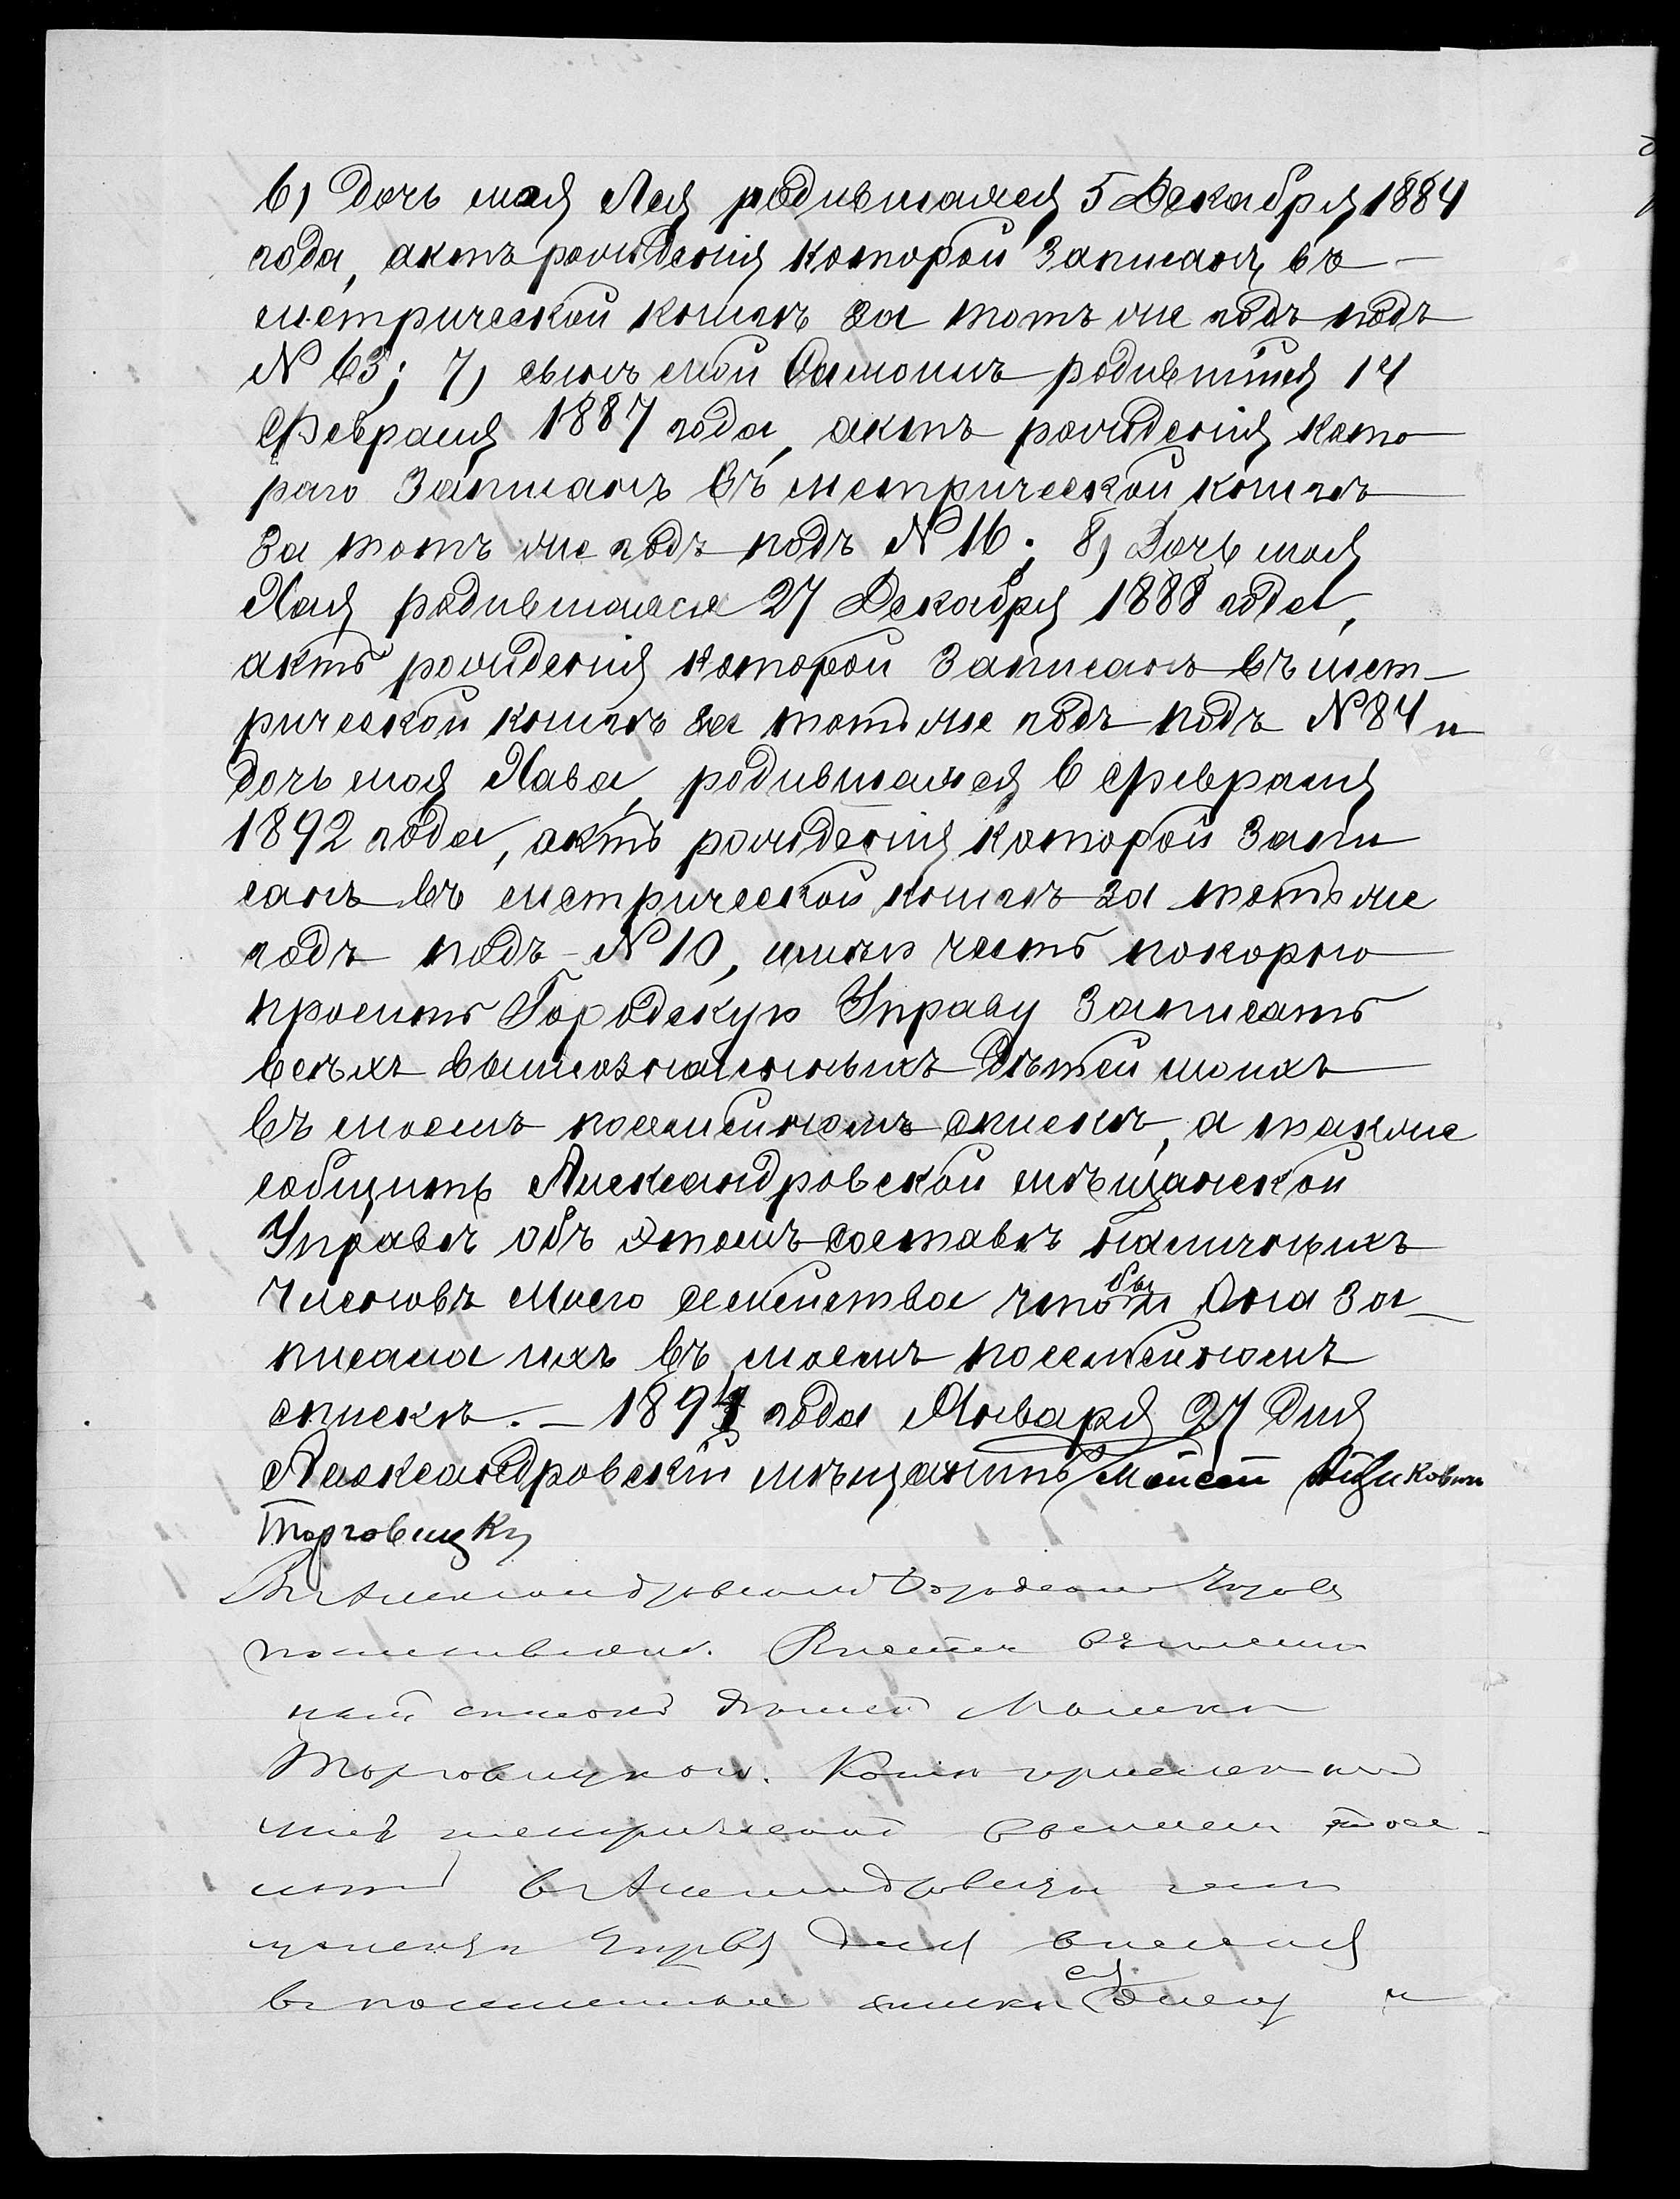 6) Дочь моя Лея родившаяся 5 Декабря 1884
года, актъ рожденія которой записанъ въ
метрической книгѣ за тотъ же годъ подъ
№ 63; 7) сынъ мой Самоилъ родившійся 14
Февраля 1887 года, актъ рожденія кото
раго записанъ въ метрической книгѣ
за тотъ же годъ подъ № 16; 8) Дочь моя
Хая родившаяся 27 Декабря 1888 года,
актъ рожденія которой записанъ въ мет-
рической книгѣ за тотъ же годъ подъ № 84 и
дочь моя Хава, родившаяся 6 Февраля
1892 года, актъ рожденія которой запи
санъ въ метрической книгѣ за тотъ же
годъ подъ № 10, имѣю честь покорно
просить Городскую Управу записать
всѣхъ вышеозначенныхъ дѣтей моихъ
въ моемъ посемейномъ спискѣ, а также
сообщить Александровской мѣщанской
Управѣ объ этомъ составѣ наличныхъ
членовъ моего семейства чтобы Она за-
писала ихъ въ моемъ посемейномъ
спискѣ. – 1894 года Января 27 дня
Александровскій мѣщанинъ Мойсей Ицковичъ
Торговицкій
Въ Александровской Городской Управѣ
списокъ дѣтей
Торговицкаго. Копіи
метрической
въ Александровскую мѣ
щанскую Управу для внесенія
въ посемейные списки и